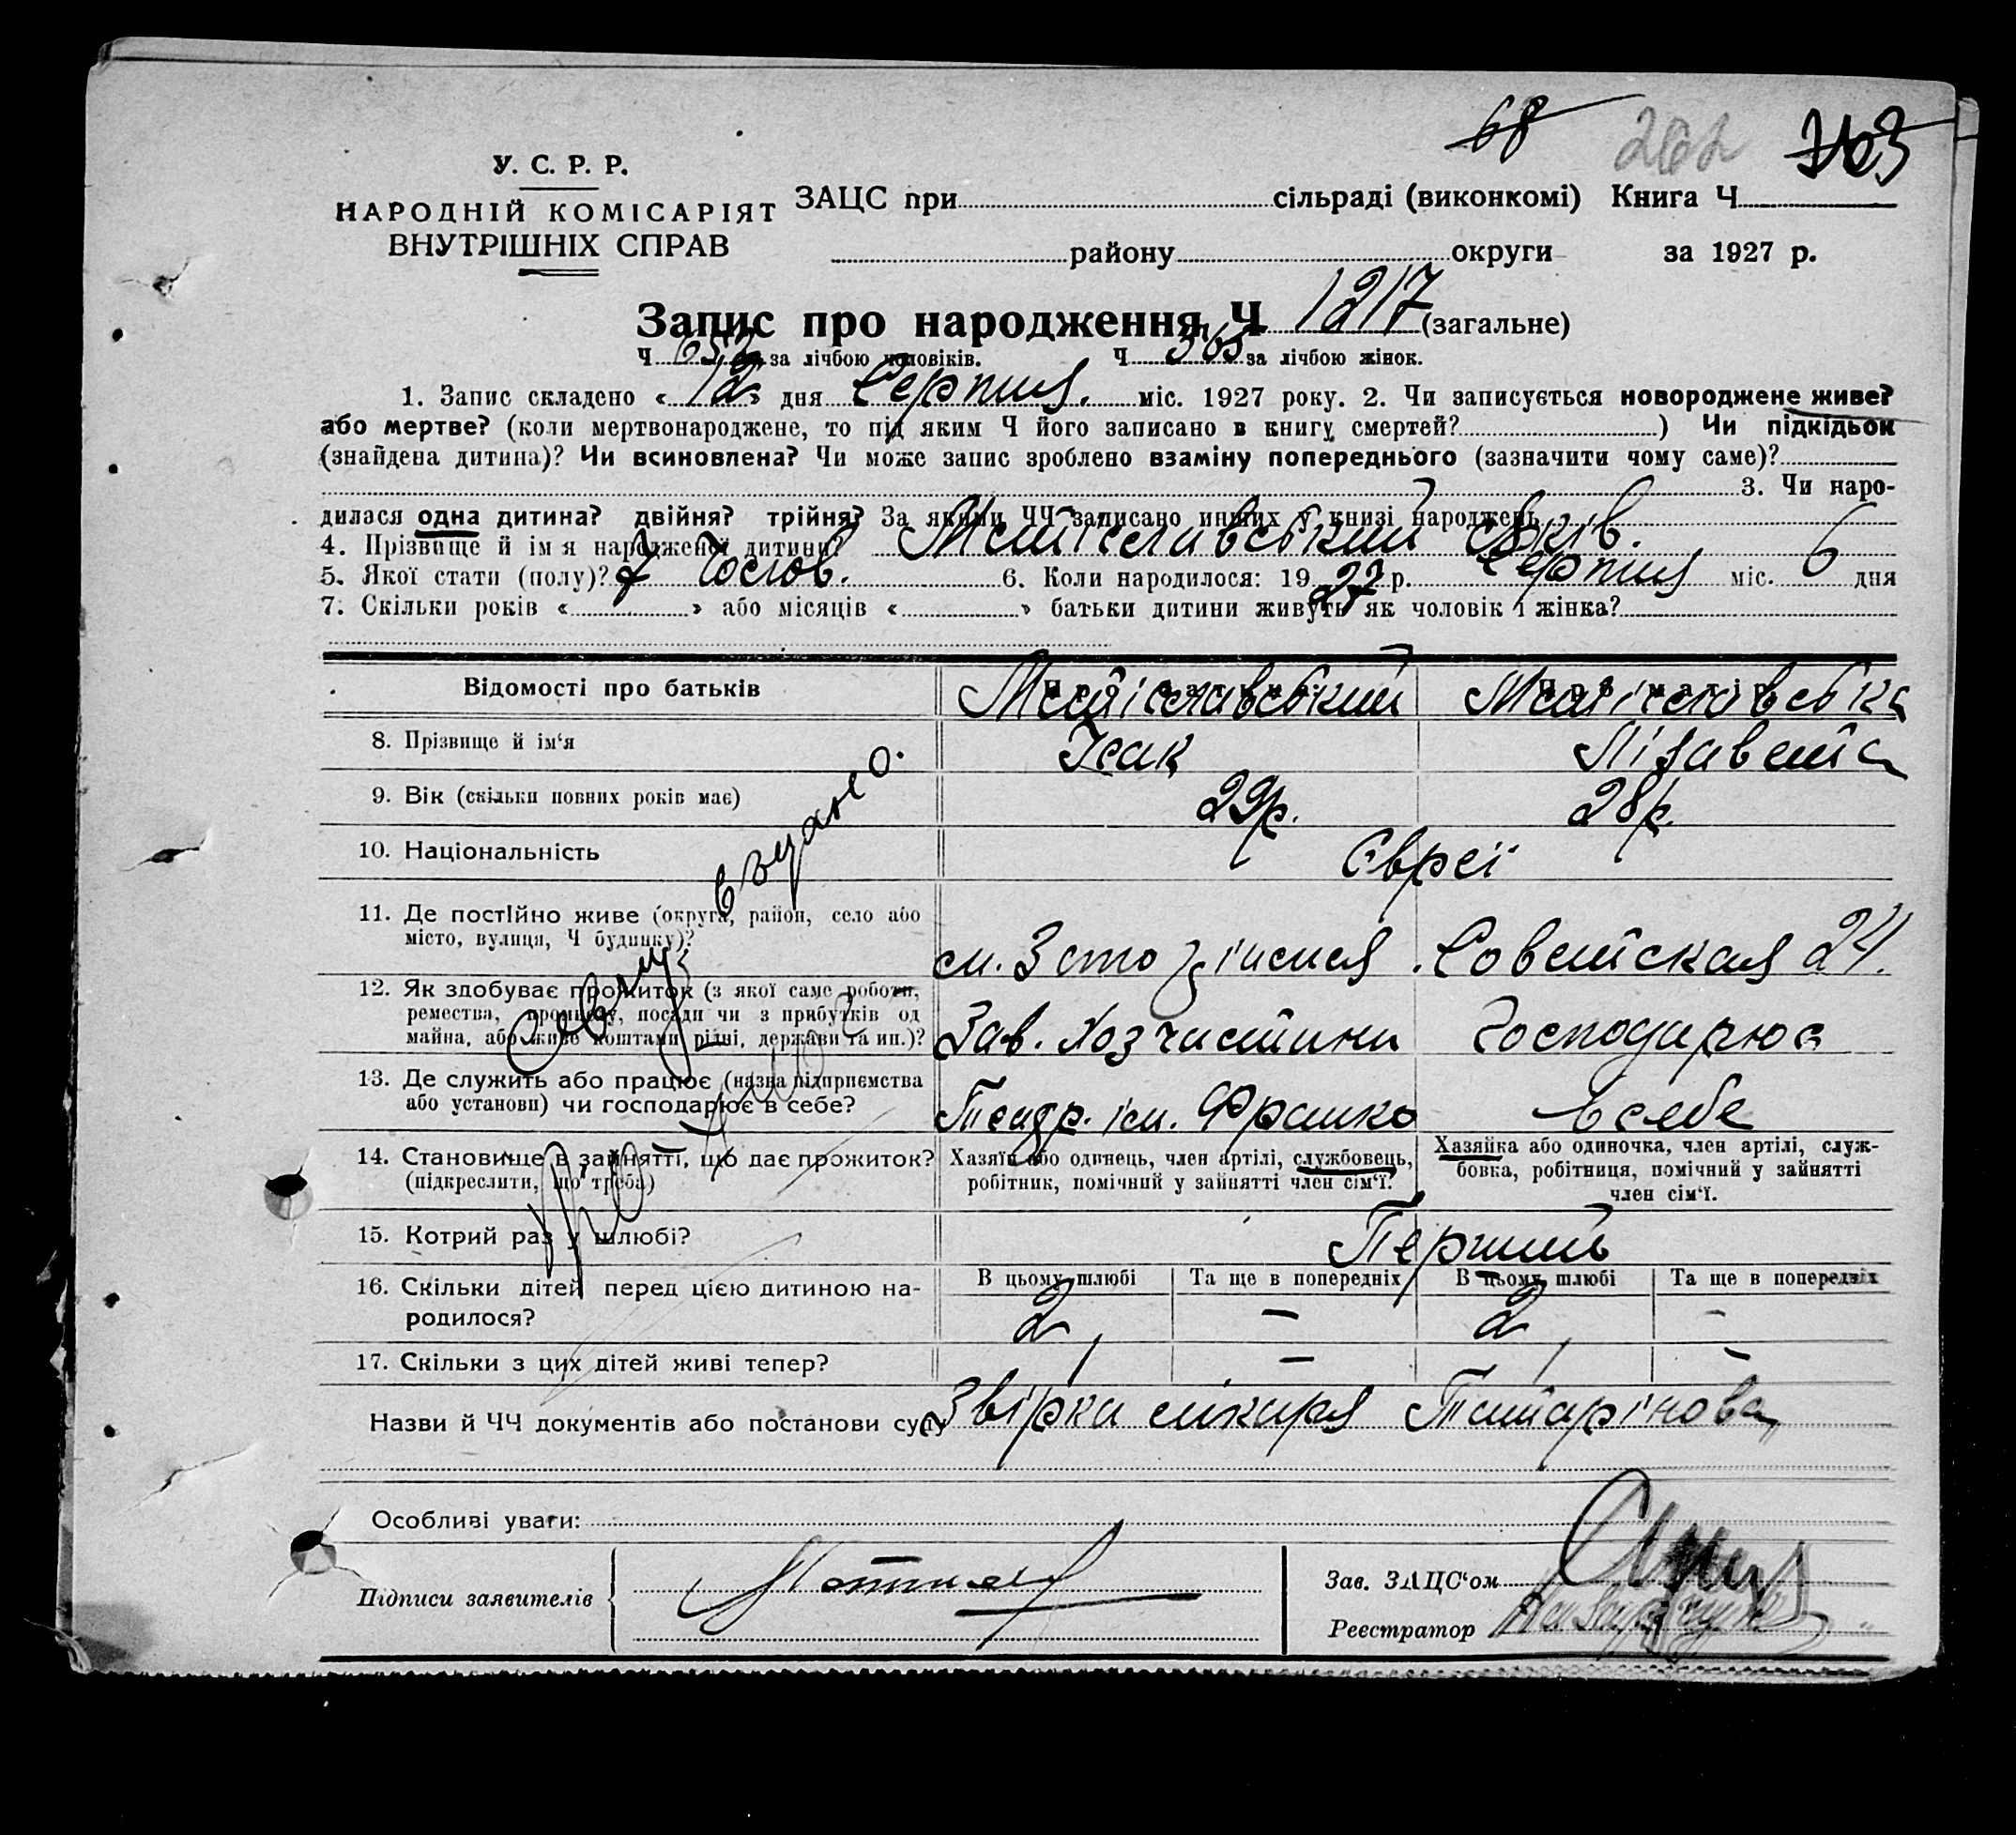 68 262 703
У. С. Р. Р.
НАРОДНІЙ КОМІСАРІЯТ
ВНУТРІШНІХ СПРАВ
ЗАЦС при сільраді (виконкомі) Книга Ч
району округи за 1927 р.
Запис про народження Ч 1217 (загальне)
Ч 652 за лічбою чоловіків. Ч 565 за лічбою жінок.
1. Запис складено « 12 » дня Серпня. міс. 1927 року. 2. Чи записується новороджене живе?
або мертве? (коли мертвонароджене, то під яким Ч його записано в книгу смертей? ) Чи підкідьок
(знайдена дитина)? Чи всиновлена? Чи може запис зроблено взаміну попереднього (зазначити чому саме)?
3. Чи наро-
дилася одна дитина? двійня? трійня? За якими ЧЧ записано инших у книзі народжень
4. Прізвище й ім я народженої дитини? Мстіславський
5. Якої стати (полу)? Чолов. 6. Коли народилося: 19 27 р. Серпня міс. 6 дня
7. Скільки років « » або місяців « » батьки дитини живуть як чоловік і жінка?
Відомості про батьків Мстіславський Мстіславська
8. Прізвище й ім‘я Ісак Лізавета
9. Вік (скільки повних років має) 29р. 28р.
10. Національність Євреї
11. Де постійно живе (округа, район, село або
місто, вулиця, Ч будинку)? Совєтская 24.
12. Як здобуває прожиток (з якої саме роботи,
ремества, промислу, посади чи з прибутків од
майна, або живе коштами рідні, держави та ин.)? Зав. Хозчастини Господарює
13. Де служить або працює (назва підприємства
або установи) чи господарює в себе? Театр. ім. Франко в себе
14. Становище в зайнятті, що дає прожиток?
(підкреслити, що треба)
Хазяїн або одинець, член артілі, службовець,
робітник, помічний у зайнятті член сім‘ї.
Хазяйка або одиночка, член артілі, служ-
бовка, робітниця, помічний у зайнятті
член сім‘ї.
15. Котрий раз у шлюбі? Перший
16. Скільки дітей перед цією дитиною на-
родилося?
В цьому шлюбі Та ще в попередніх В цьому шлюбі Та ще в попередніх
2 – 2 –
17. Скільки з цих дітей живі тепер? 1 – 1 –
Назви й ЧЧ документів або постанови суду Звірка лікаря Татарінова
Особливі уваги:
Підписи заявителів
Зав. ЗАЦС‘ом
Реєстратор